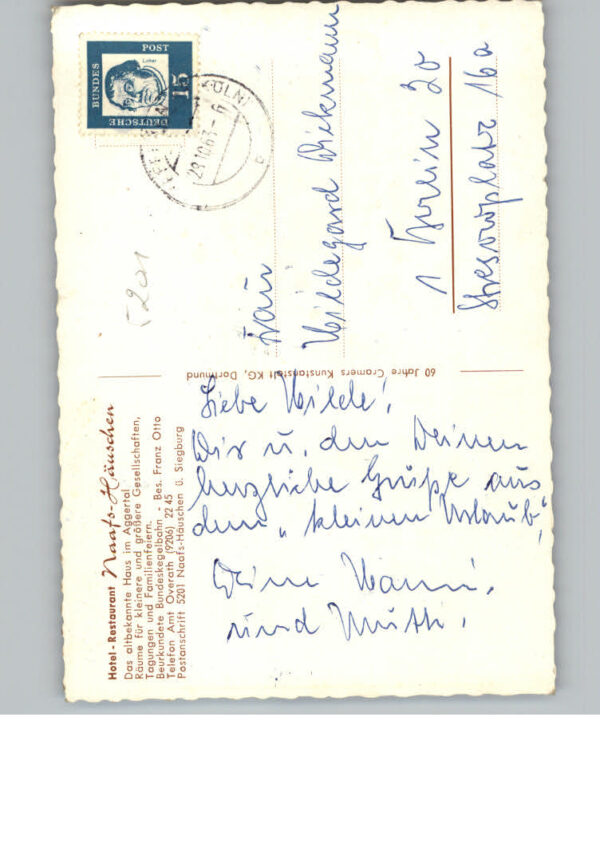 Hotel - Restaurant Naafs-Häuschen
Das altbekannte Haus im Aggertal
Räume für kleinere und größere Gesellschaften,
Tagungen und Familienfeiern.
Beurkundete Bundeskegelbahn - Bes. Franz Otto
Telefon Amt Overath (9206) 22 45
Postanschrift 5201 Naafs-Häuschen ü. Siegburg
Liebe Hilde!
Dir u. den Deinen
herzliche Grüße aus
dem „kleinen Urlaub“,
Deine Hanni,
und Mutti.
60 Jahre Cramers Kunstanstalt KG, Dortmund
5201
DEUTSCHE
BUNDES
POST
15
Luther
KÖLN)
29.10.63 - 6
Frau
Hildegard Diekmann
1 Berlin 20
Stresowplatz 16a